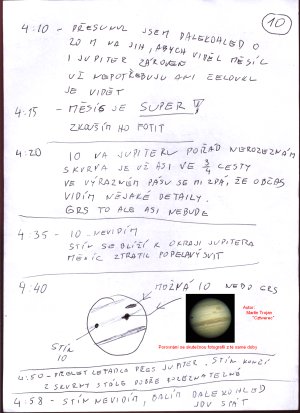 10
4:10 - PŘESUNUL JSEM DALEKOHLED O
20 M NA JIH, ABYCH VIDĚL MĚSÍC
I JUPITER ZÁROVEŇ
UŽ NEPOTŘEBUJU ANI ČELOVKU
JE VIDĚT
4:15 - MĚSÍC JE SUPER
ZKOUŠÍM HO FOTIT
4:20 IO NA JUPITERU POŘÁD NEROZEZNÁM
SKVRNA JE UŽ ASI VE 3/4 CESTY
VE VÝRAZNÉM PÁSU SE MI ZDÁ, ŽE OBČAS
VIDÍM NĚJAKÉ DETAILY.
GRS TO ALE ASI NEBUDE
4:35 - IO NEVIDÍM
STÍN SE BLÍŽÍ K OKRAJI JUPITERA
MĚSÍC ZTRATIL POPELAVÝ SVIT
4:40
MOŽNÁ IO NEBO GRS
STÍN
IO
Autor:
Martin Trojan
Porovnání se skutečnou fotografií z té samé doby
4:50 - PŘELET LETADLA PŘES JUPITER. STÍN KONČÍ
2 SKVRNY STÁLE DOBŘE ROZEZNATELNÉ
4:58 - STÍN NEVIDÍM, BALÍM DALEKOHLED
JDU SPÁT